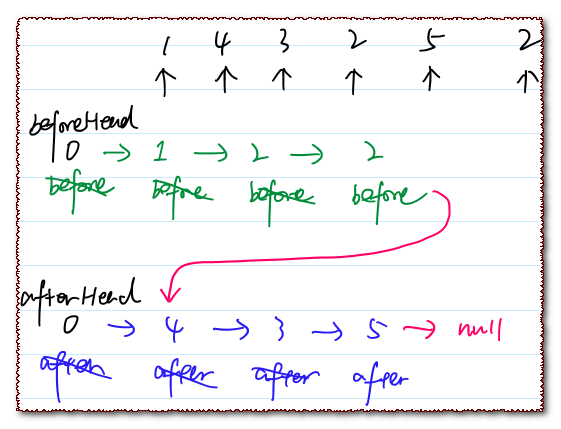 1 4 3 2 5 2
↑ ↑ ↑ ↑ ↑ ↑
beforeHead
0 → 1 → 2 → 2
before before before before
afterHead
0 → 4 → 3 → 5 → null
after after after after